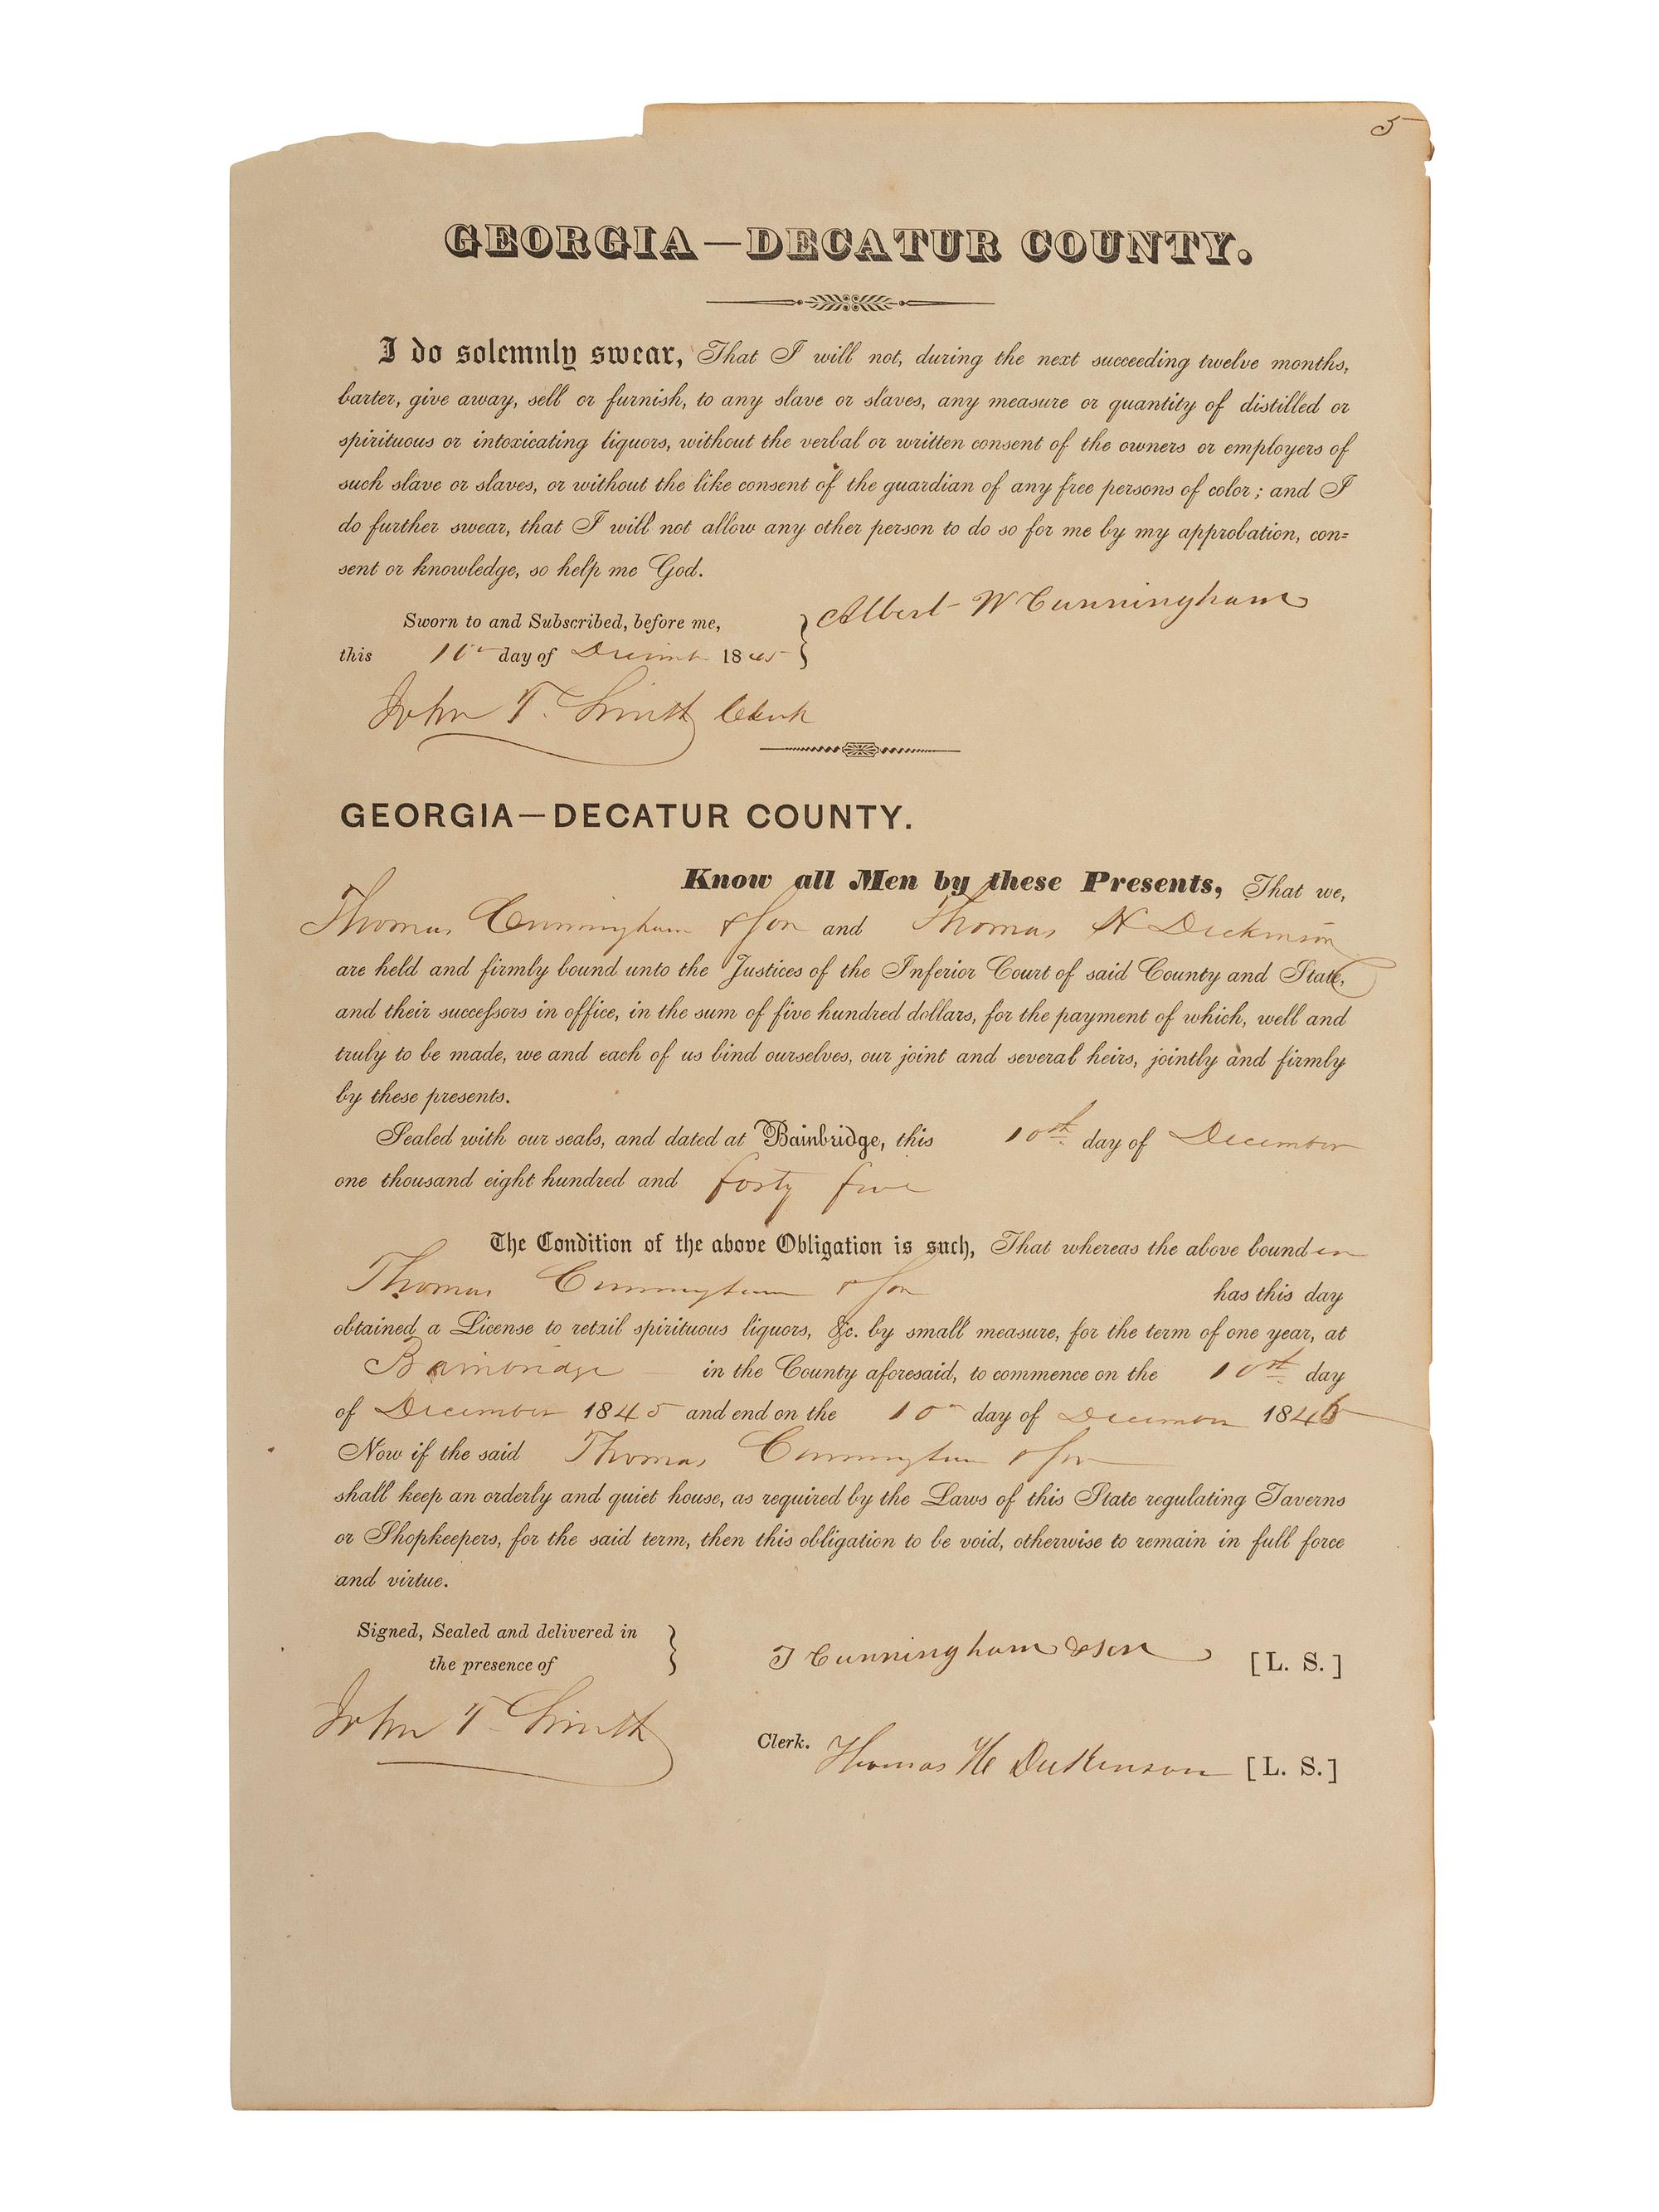 5
GEORGIA—DECATUR COUNTY.
I do solemnly swear, That I will not, during the next succeeding twelve months,
barter, give away, sell or furnish, to any slave or slaves, any measure or quantity of distilled or
spirituous or intoxicating liquors, without the verbal or written consent of the owners or employers of
such slave or slaves, or without the like consent of the guardian of any free persons of color; and I
do further swear, that I will not allow any other person to do so for me by my approbation, con=
sent or knowledge, so help me God.
Albert W Cunningham
Sworn to and Subscribed, before me,
this 10th day of December 1845
John T. Smith Clerk
GEORGIA—DECATUR COUNTY.
Know all Men by these Presents, That we,
Thomas Cunningham & Son and Thomas H Dickinson
are held and firmly bound unto the Justices of the Inferior Court of said County and State,
and their successors in office, in the sum of five hundred dollars, for the payment of which, well and
truly to be made, we and each of us bind ourselves, our joint and several heirs, jointly and firmly
by these presents.
Sealed with our seals, and dated at Bainbridge, this 10th day of December
one thousand eight hundred and forty five
The Condition of the above Obligation is such, That whereas the above bounden
Thomas Cunningham & Son has this day
obtained a License to retail spirituous liquors, &c. by small measure, for the term of one year, at
Bainbridge in the County aforesaid, to commence on the 10th day
of December 1845 and end on the 10 day of December 1846
Now if the said Thomas Cunningham & Son
shall keep an orderly and quiet house, as required by the Laws of this State regulating Taverns
or Shopkeepers, for the said term, then this obligation to be void, otherwise to remain in full force
and virtue.
Signed, Sealed and delivered in
the presence of
T Cunningham & Son [L. S.]
John T Smith Clerk. Thomas H Dickenson [L. S.]